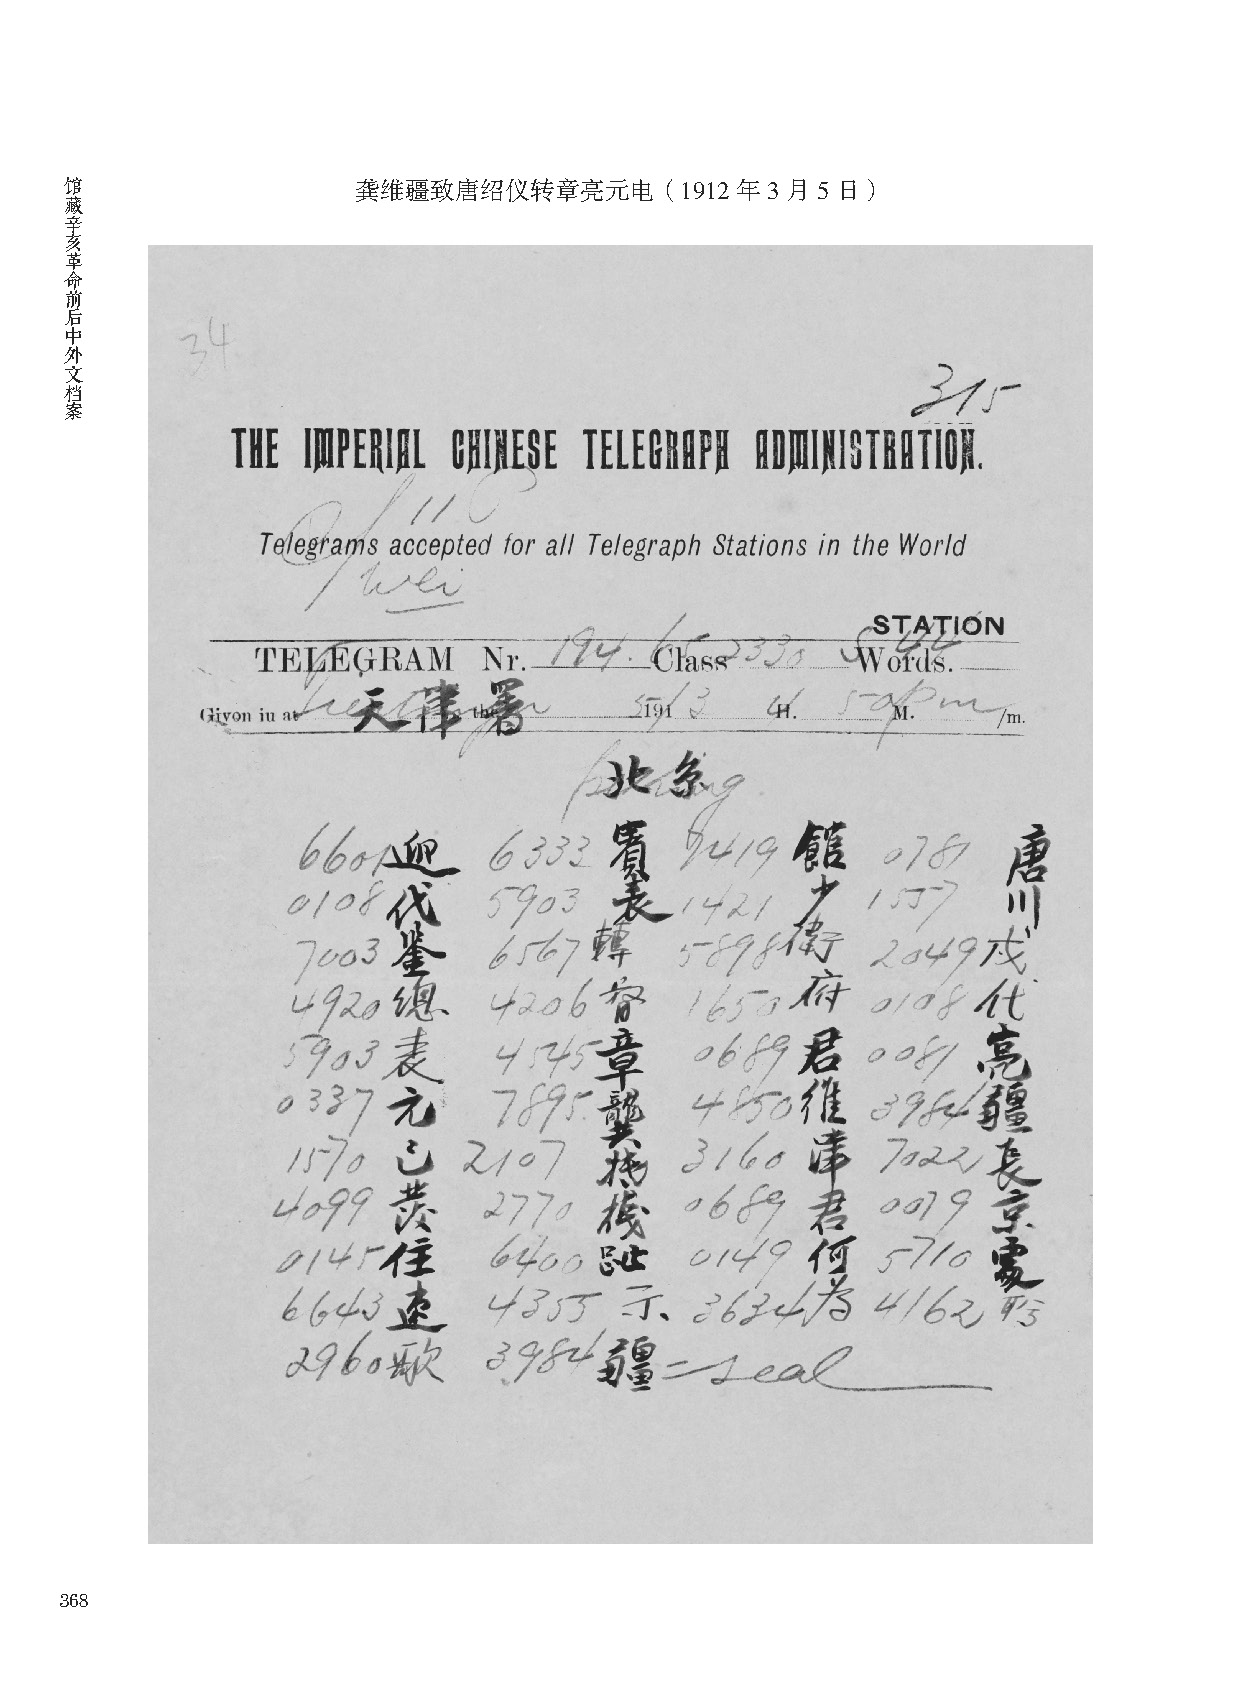 馆藏辛亥革命前后中外文档案
龚维疆致唐绍仪转章亮元电（1912年3月5日）
34
315
THE IMPERIAL CHINESE TELEGRAPH ADMINISTRATION.
Telegrams accepted for all Telegraph Stations in the World
Wei
STATION
TELEGRAM Nr. 194. 65 Class 2330 S 44 Words.
Given in at Tientsin 天津署 the 5/3 191 4 H. 50 pm M. /m.
Peking 北京
6601 迎 6333 賓 7419 館 0781 唐
0108 代 5903 表 1421 少 1557 川
7003 鑒 6567 轉 5898 衛 2049 戍
4920 總 4206 督 1650 府 0108 代
5903 表 4545 章 0689 君 0081 亮
0337 元 7895 龔 4850 維 3984 疆
1570 已 2107 抵 3160 津 7022 長
4099 發 2770 機 0689 君 0079 京
0145 住 6400 趾 0149 何 5710 處
6643 速 4355 示 3634 為 4162 盼
2960 歌 3984 疆 = seal
368